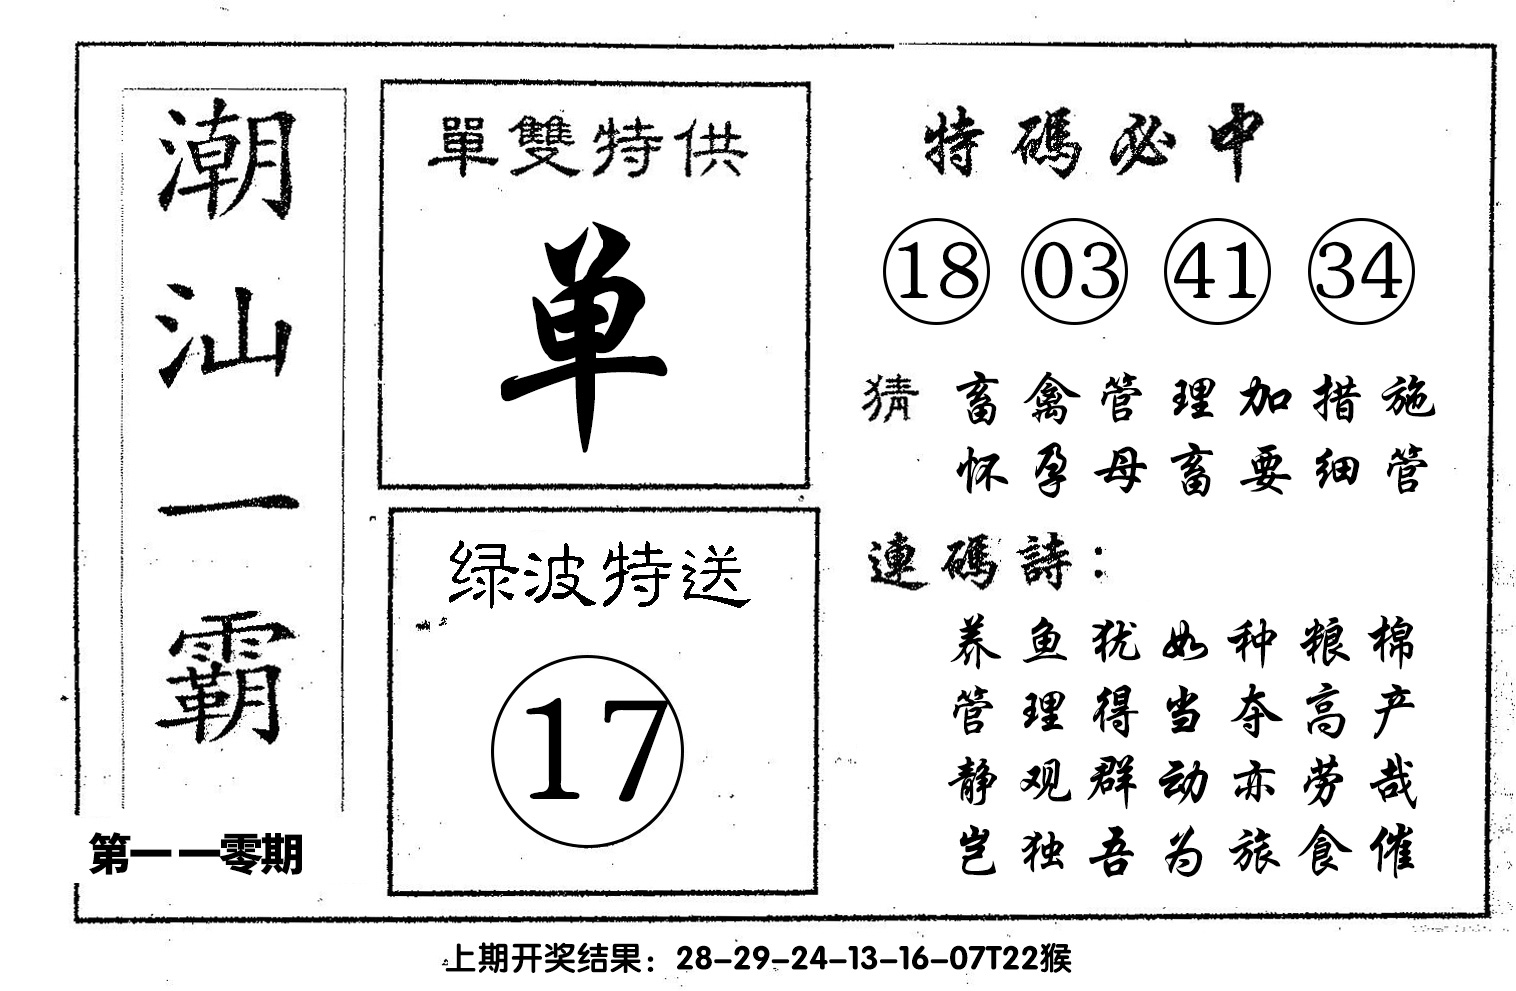 潮汕一霸
第一一零期
單雙特供
单
绿波特送
17
特碼必中
18 03 41 34
猜 畜禽管理加措施
怀孕母畜要细管
連碼詩：
养鱼犹如种粮棉
管理得当夺高产
静观群动亦劳哉
岂独吾为旅食催
上期开奖结果：28-29-24-13-16-07T22猴